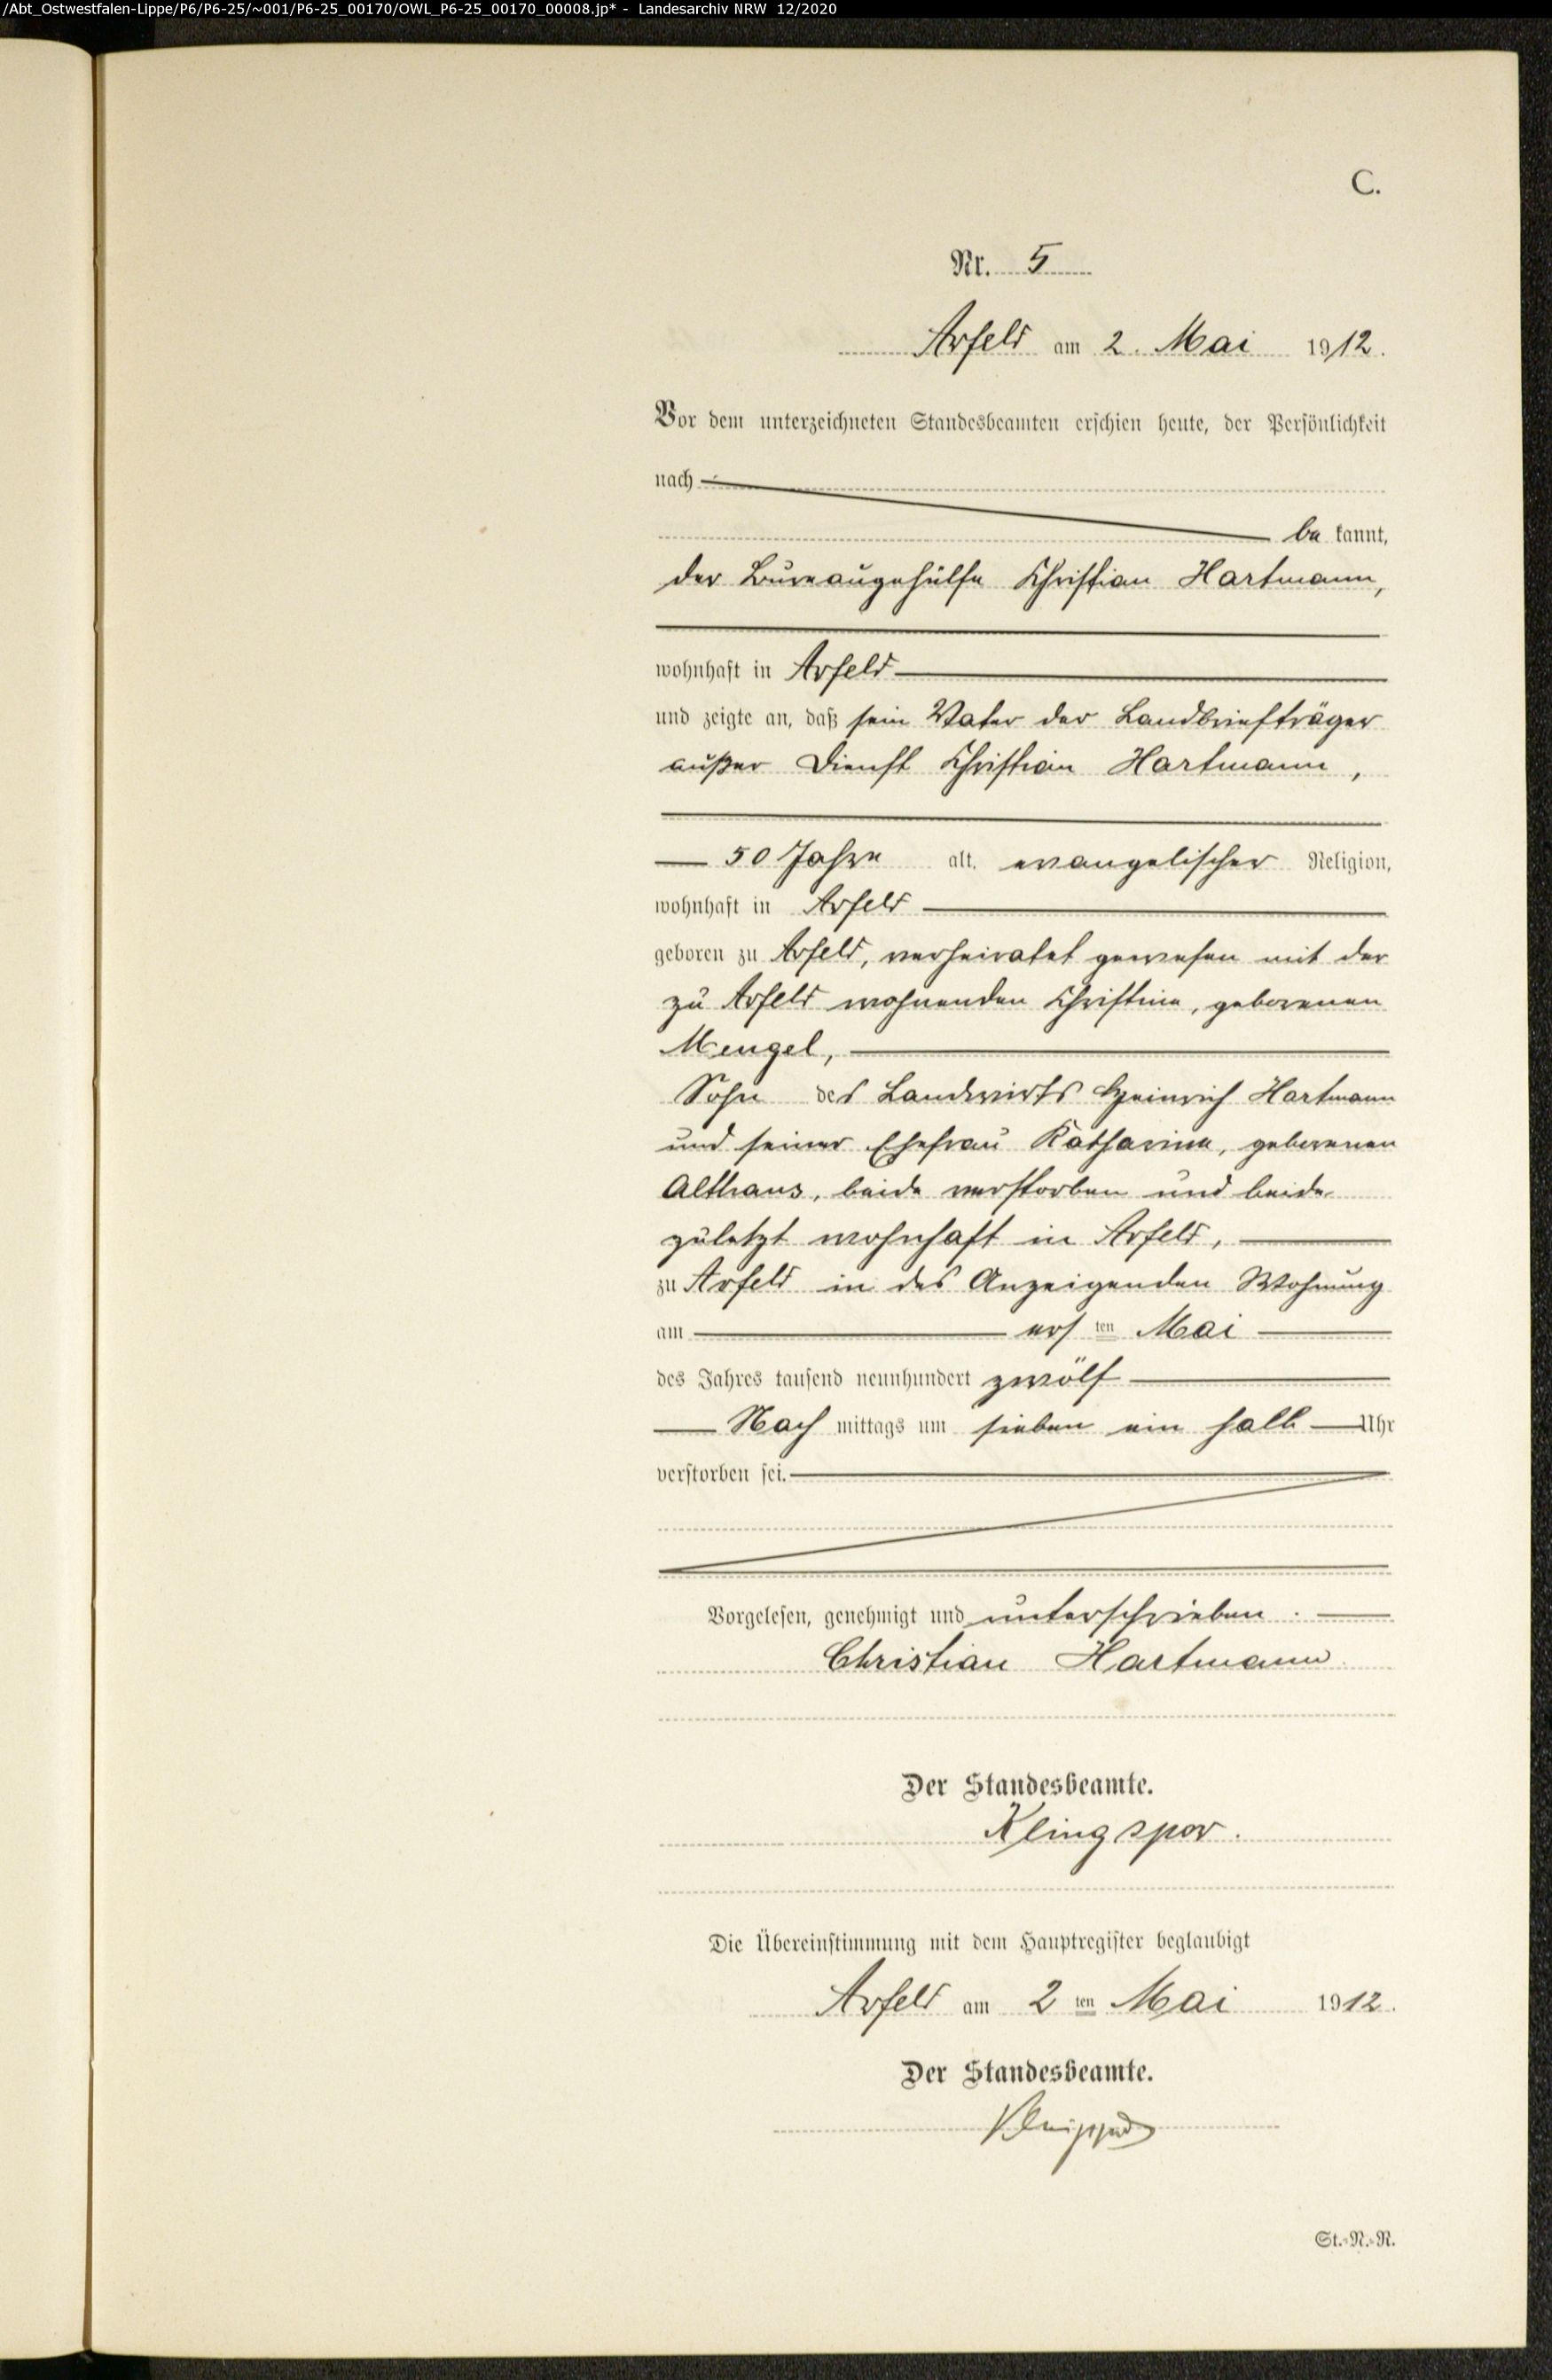 /Abt_Ostwestfalen-Lippe/P6/P6-25/~001/P6-25_00170/OWL_P6-25_00170_00008.jp* - Landesarchiv NRW 12/2020
C.
Nr. 5
Arfeld am 2. Mai 1912.
Vor dem unterzeichneten Standesbeamten erschien heute, der Persönlichkeit
nach
be kannt,
der Bureaugehülfe Christian Hartmann,
wohnhaft in Arfeld
und zeigte an, daß sein Vater der Landbriefträger
außer Dienst Christian Hartmann,
50 Jahre alt, evangelischer Religion,
wohnhaft in Arfeld
geboren zu Arfeld, verheiratet gewesen mit der
zu Arfeld wohnenden Christine, geborenen
Mengel,
Sohn des Landwirts Heinrich Hartmann
und seiner Ehefrau Katharine, geborenen
Althaus, beide verstorben und beide
zuletzt wohnhaft in Arfeld,
zu Arfeld in des Anzeigenden Wohnung
am ers ten Mai
des Jahres tausend neunhundert zwölf
Nach mittags um sieben ein halb Uhr
verstorben sei.
Vorgelesen, genehmigt und unterschrieben.
Christian Hartmann
Der Standesbeamte.
Klingspor.
Die Übereinstimmung mit dem Hauptregister beglaubigt
Arfeld am 2 ten Mai 1912.
Der Standesbeamte.
St.-N.-R.